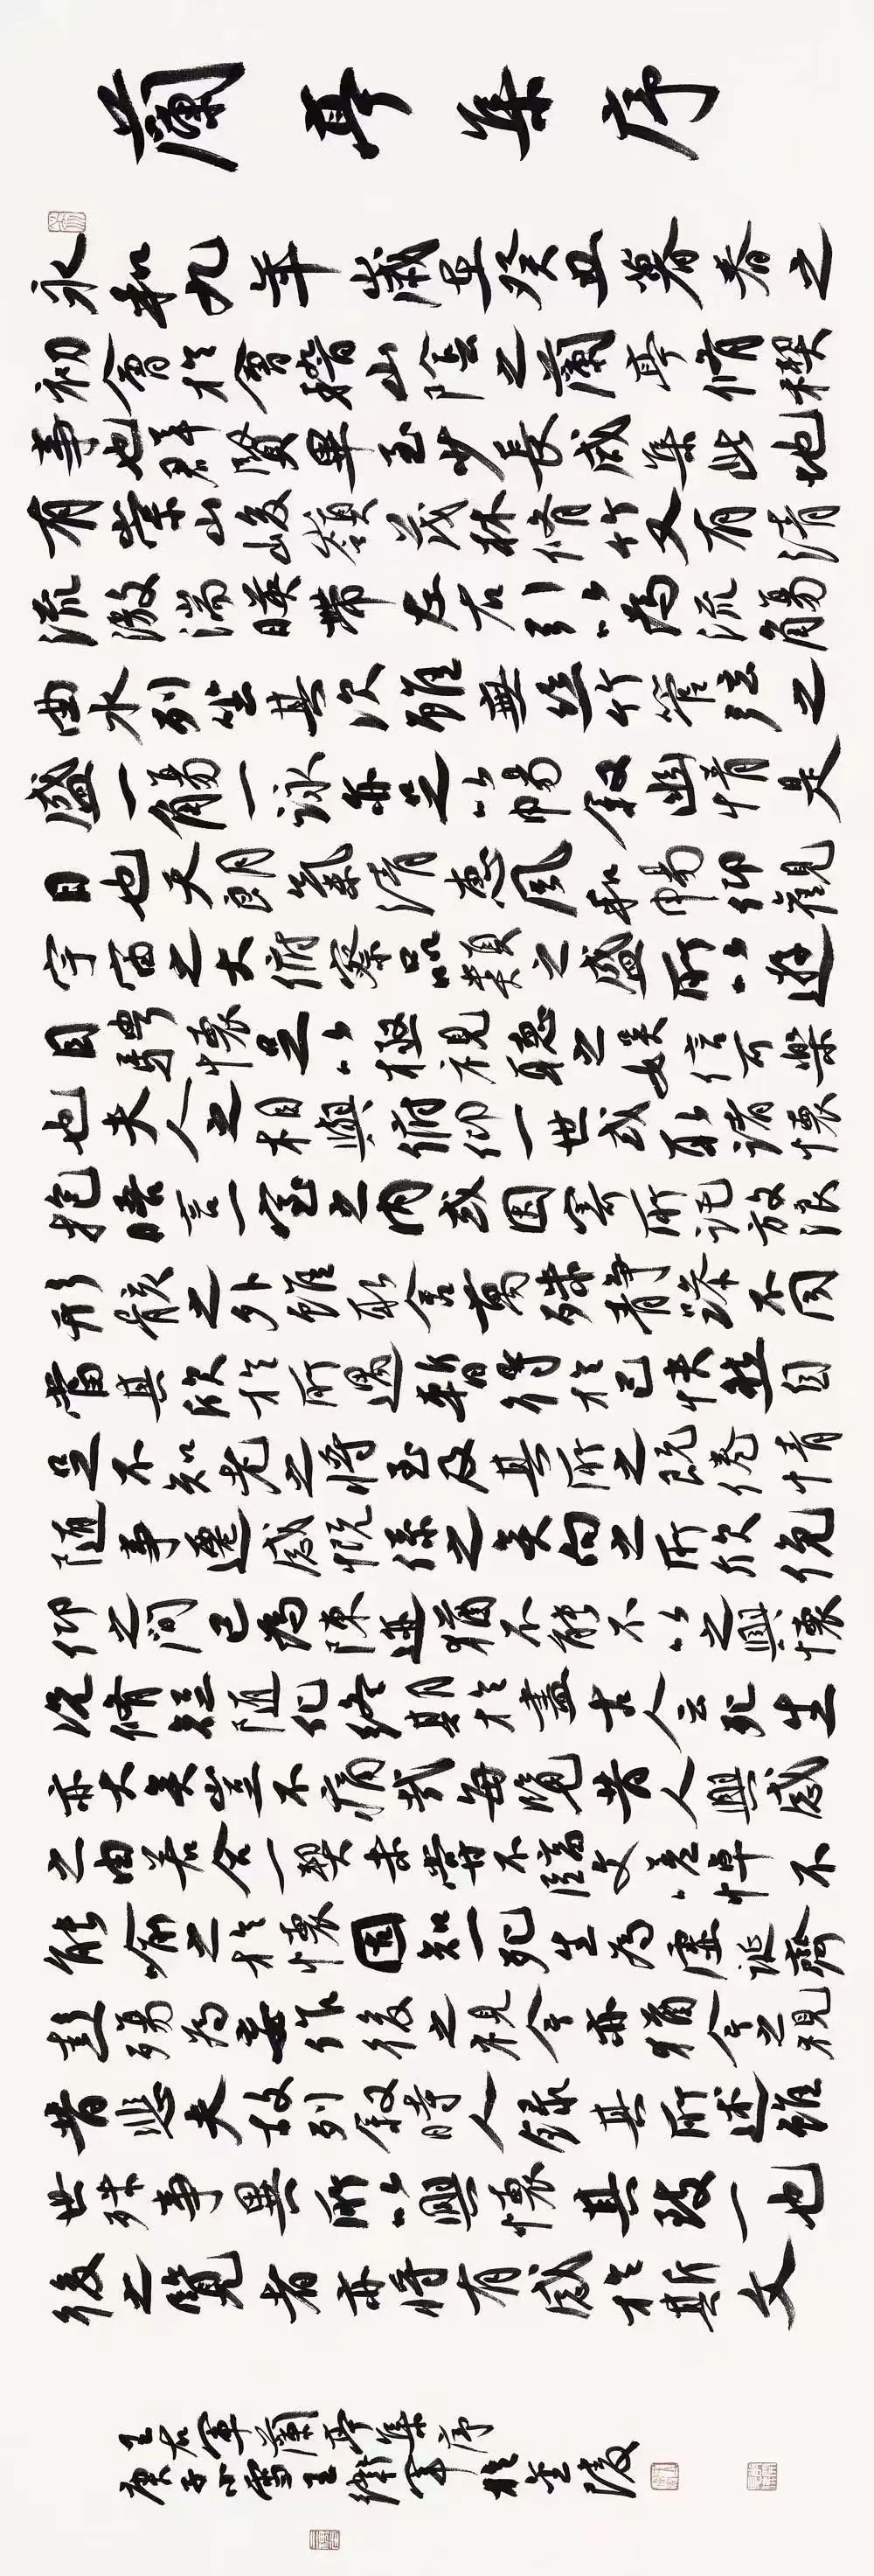 蘭亭集序
永和九年歲在癸丑暮春之
初會於會稽山陰之蘭亭脩禊
事也群賢畢至少長咸集此地
有崇山峻嶺茂林脩竹又有清
流激湍暎帶左右引以為流觴
曲水列坐其次雖無絲竹管弦之
盛一觴一詠亦足以暢敘幽情是
日也天朗氣清惠風和暢仰觀
宇宙之大俯察品類之盛所以遊
目騁懷足以極視聽之娛信可樂
也夫人之相與俯仰一世或取諸懷
抱晤言一室之內或因寄所託放浪
形骸之外雖取舍萬殊靜躁不同
當其欣於所遇暫得於己快然自
足不知老之將至及其所之既倦情
隨事遷感慨係之矣向之所欣俛
仰之間已為陳迹猶不能不以之興懷
況脩短隨化終期於盡古人云死生
亦大矣豈不痛哉每覽昔人興感
之由若合一契未嘗不臨文嗟悼不
能喻之於懷固知一死生為虛誕齊
彭殤為妄作後之視今亦猶今之視
昔悲夫故列敘時人錄其所述雖
世殊事異所以興懷其致一也
後之覽者亦將有感於斯文
王右軍蘭亭集序
庚子小雪王衛軍於金陵